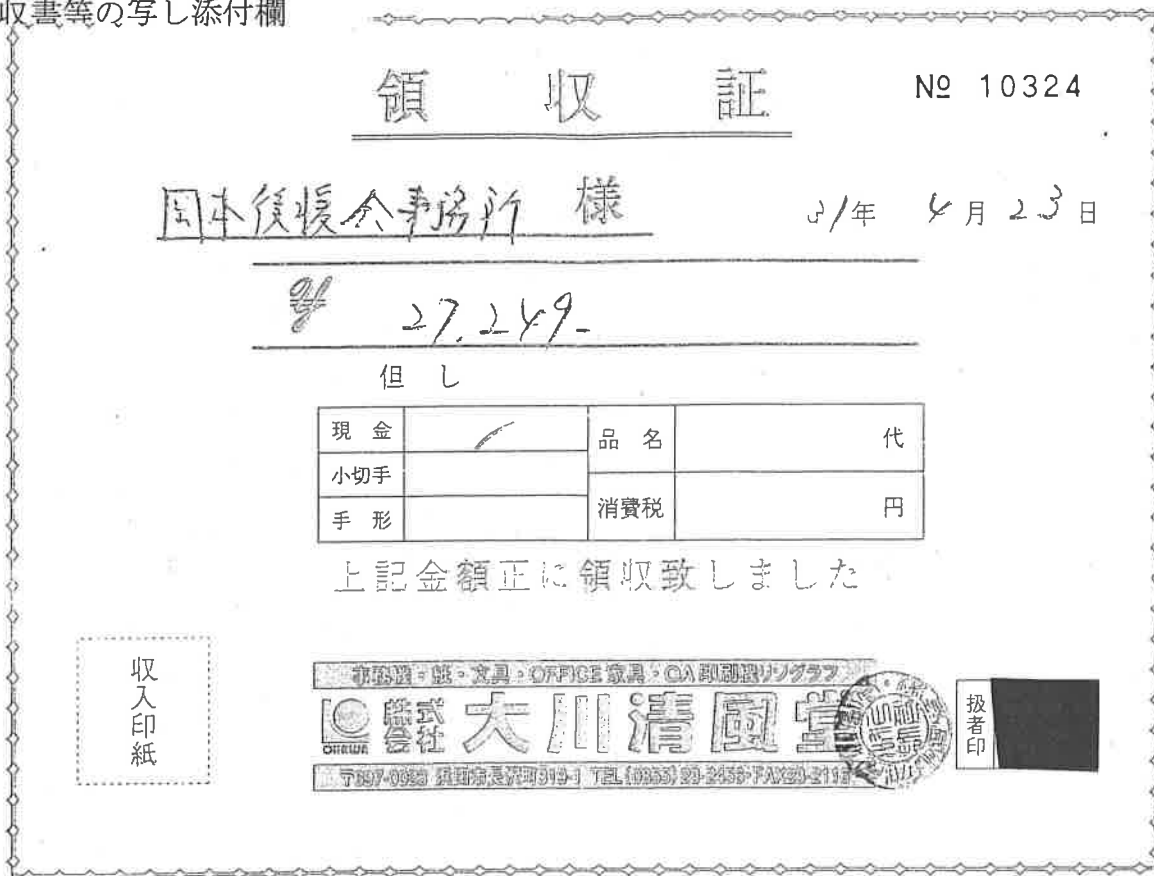 収書等の写し添付欄
領収証
№ 10324
岡本後援会事務所 様
31年 4月23日
¥ 27,249-
但し
現金
品名 代
小切手
消費税 円
手形
上記金額正に領収致しました
収入印紙
事務機・紙・文具・OFFICE家具・OA印刷機リソグラフ
株式会社 大川清風堂
OHKAWA
TEL(0855)
扱者印